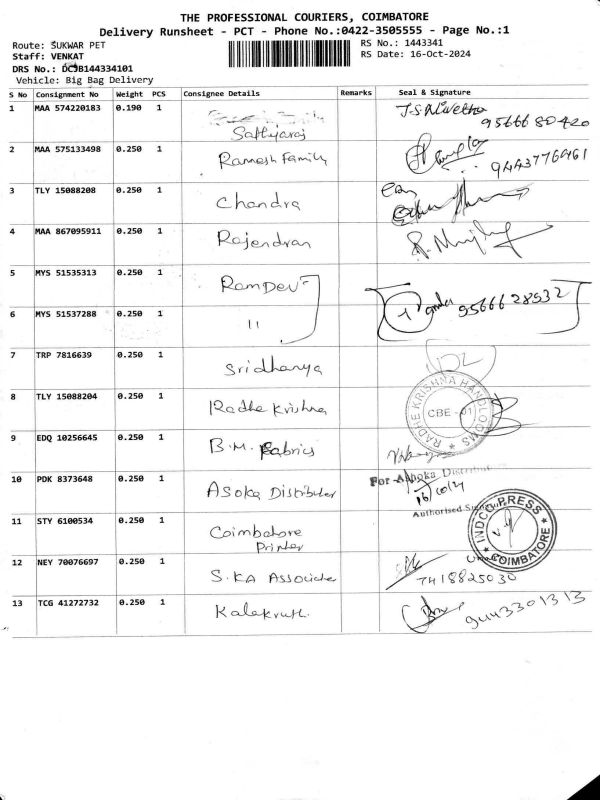 THE PROFESSIONAL COURIERS, COIMBATORE
Delivery Runsheet - PCT - Phone No.:0422-3505555 - Page No.:1
Route: SUKWAR PET
RS No.: 1443341
Staff: VENKAT
RS Date: 16-Oct-2024
DRS No.: B144334101
Vehicle: Big Bag Delivery
S No Consignment No Weight PCS Consignee Details Remarks Seal & Signature
1 MAA 574220183 0.190 1 Sathyaraj J.S.Nivetha
9566680420
2 MAA 575133498 0.250 1 Ramesh Family
9443776961
3 TLY 15088208 0.250 1 Chandra
4 MAA 867095911 0.250 1 Rajendran
5 MYS 51535313 0.250 1 RamDev
9566628932
6 MYS 51537288 0.250 1 11
7 TRP 7816639 0.250 1 Sridhanya
8 TLY 15088204 0.250 1 Radhe Krishna
RADHE KRISHNA HANDLOOMS
CBE - 01
9 EDQ 10256645 0.250 1 B.M. Fabrics
10 PDK 8373648 0.250 1 Asoka Distributer
For Ashoka Distribut
16/10/24
Authorised
11 STY 6100534 0.250 1 Coimbatore
Printer
INDCOPRESS
COIMBATORE
12 NEY 70076697 0.250 1 S.KA Associate
7418825030
13 TCG 41272732 0.250 1
9443301313